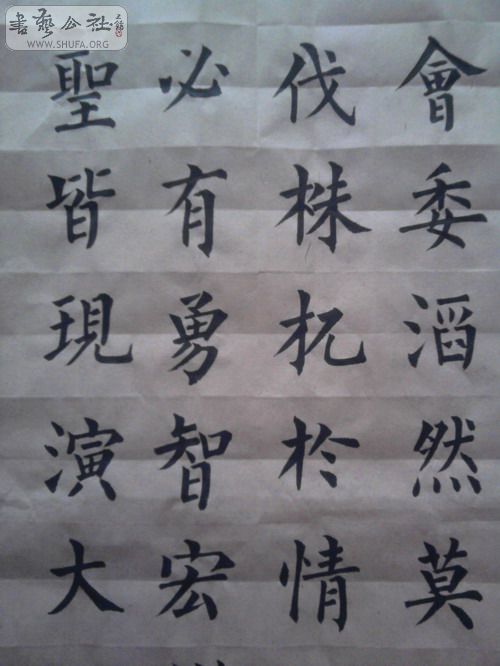 會委滔然莫
伐株杌於情
必有勇智宏
聖皆現演大
書藝公社
WWW.SHUFA.ORG